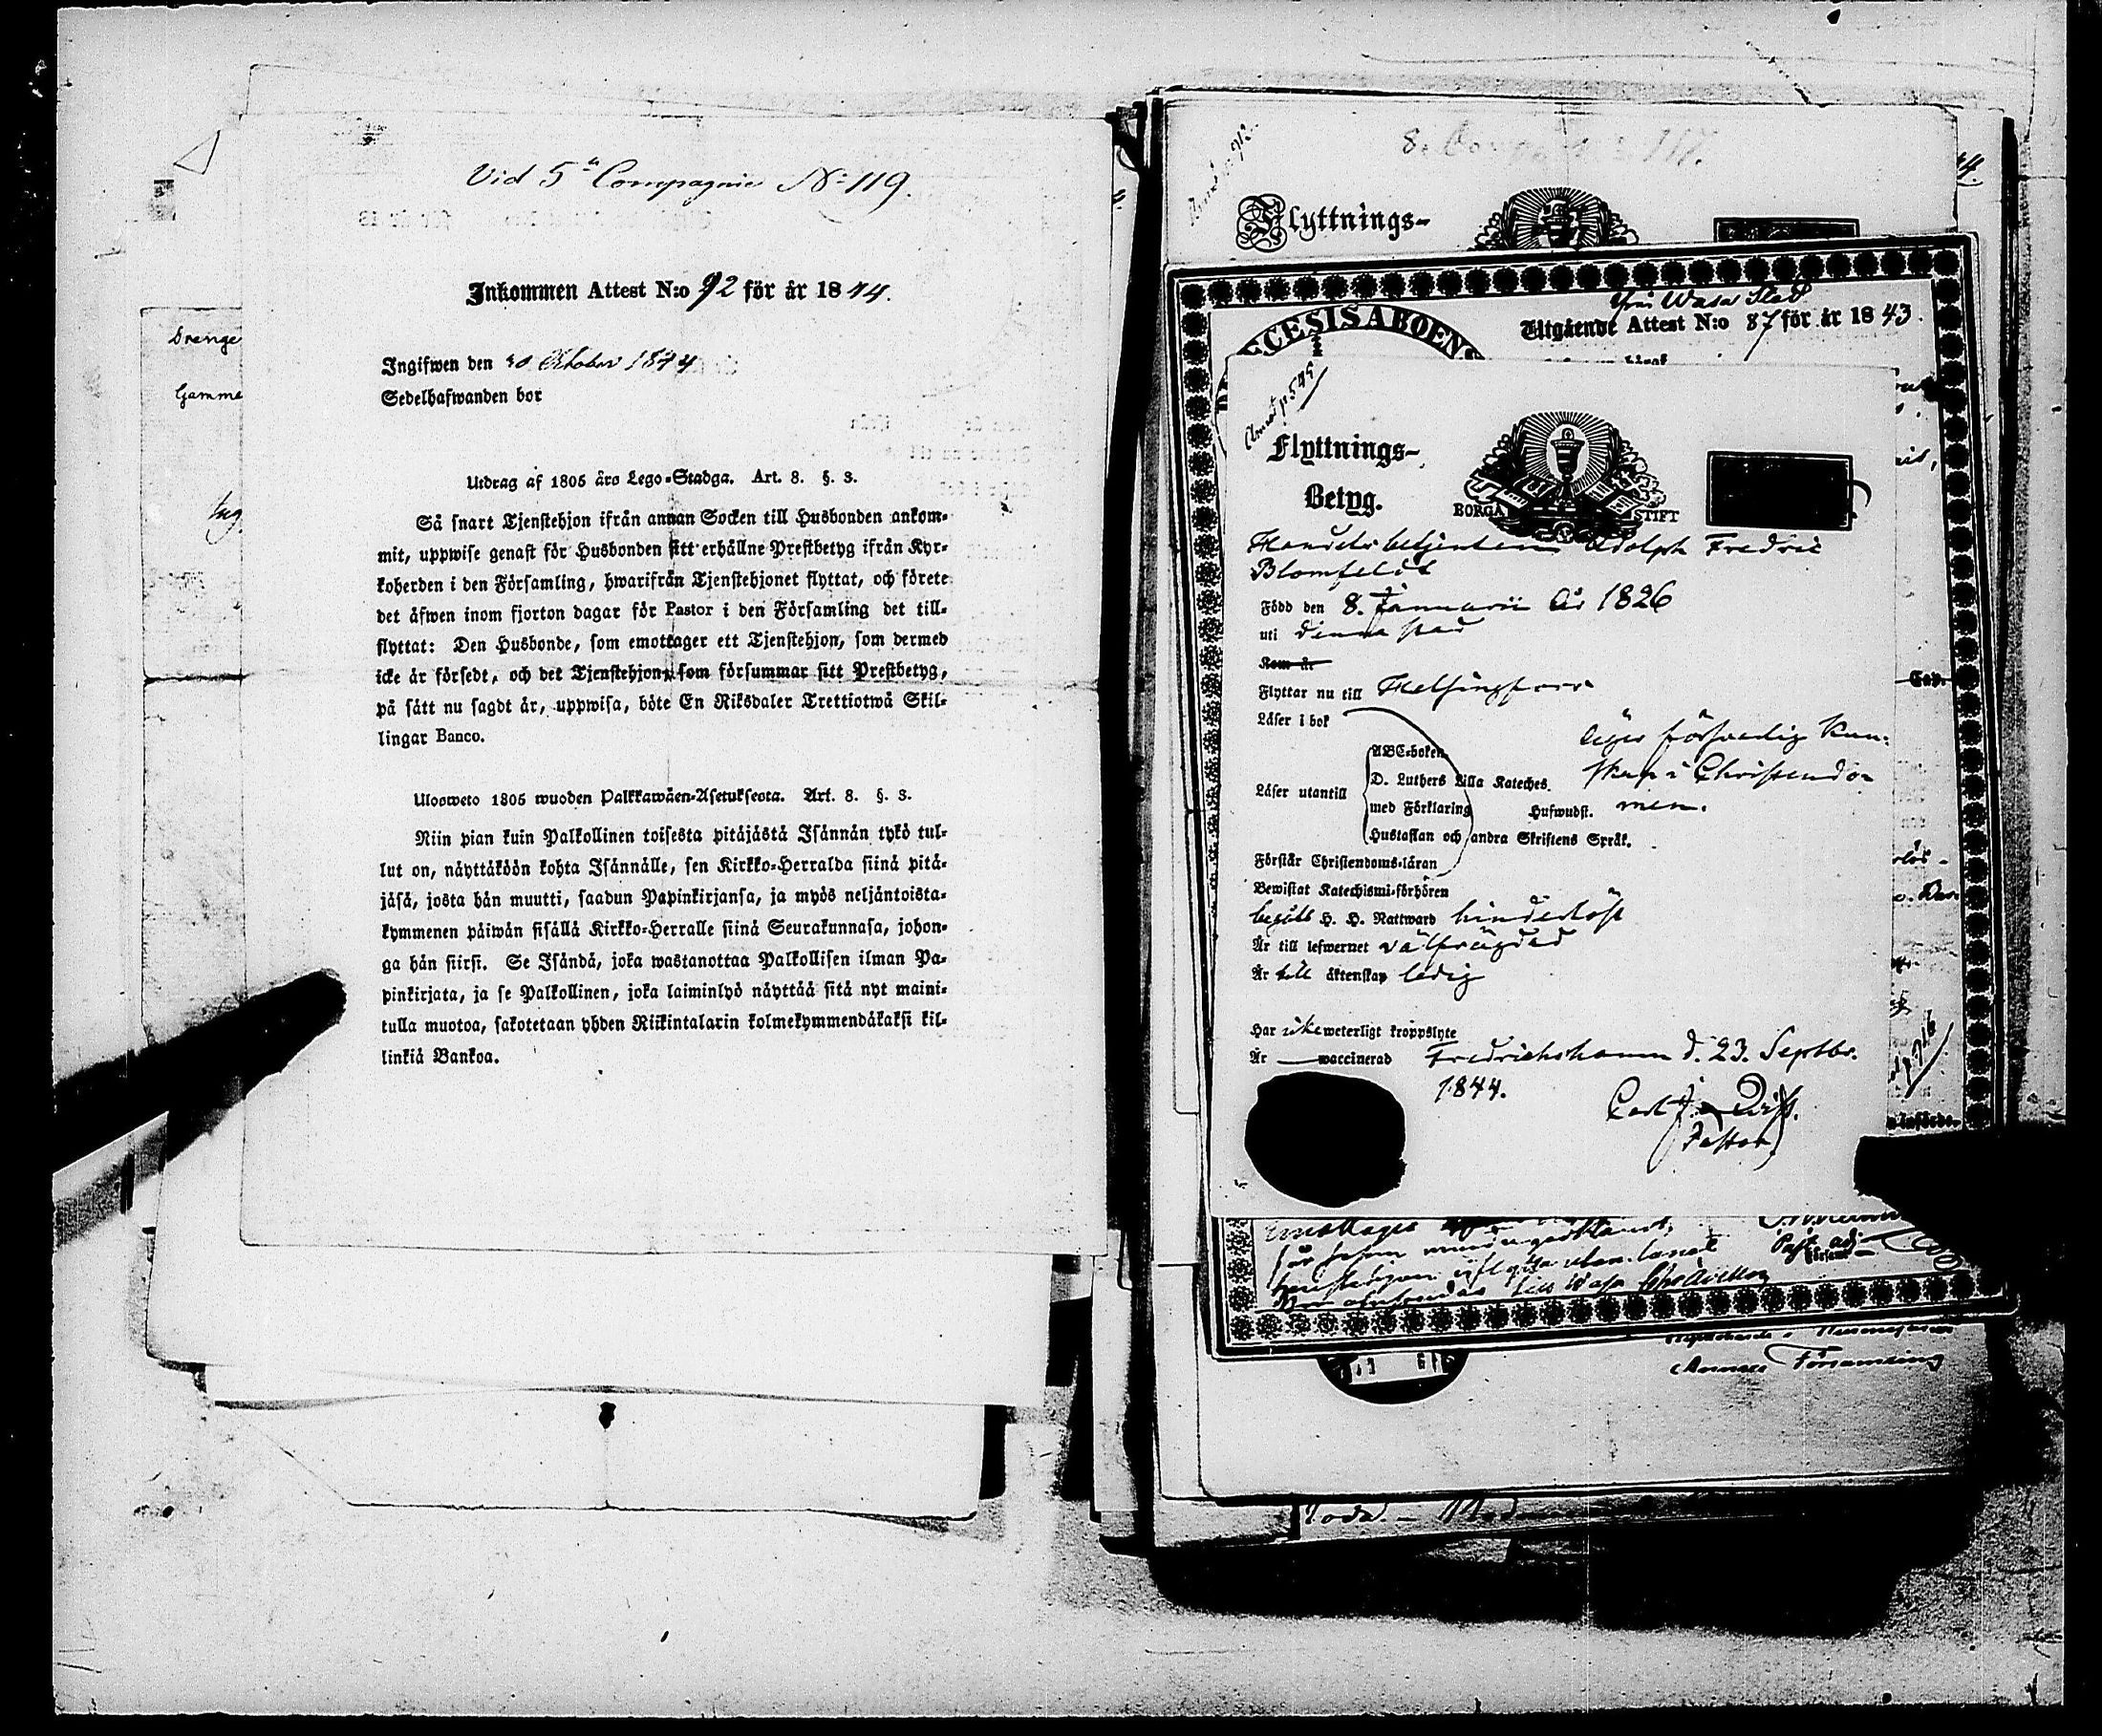 Vid 5te Compagnie No 119.
Inkommen Attest N:o 92 för år 1844.
Ingifwen den 10 Oktober 1844
Sedelhafwanden bor
Utdrag af 1805 års Lego-Stadga. Art. 8. §. 3.
Så snart Tjenstehjon ifrån annan Socken till Husbonden ankom-
mit, uppwise genast för Husbonden sitt erhållne Prestbetyg ifrån Kyr-
koherden i den Församling, hwarifrån Tjenstehjonet flyttat, och förete
det åfwen inom fjorton dagar för Pastor i den Församling det till-
flyttat: Den Husbonde, som emottager ett Tjenstehjon, som dermed
icke är försedt, och det Tjenstehjon, som försummar sitt Prestbetyg,
på sätt nu sagdt är, uppwisa, böte En Riksdaler Trettiotwå Skil-
lingar Banco.
Ulosweto 1805 wuoden Palkkawäen-Asetuksesta. Art. 8. §. 3.
Niin pian kuin Palkollinen toisesta pitäjästä Isännän tykö tul-
lut on, näyttäköön kohta Isännälle, sen Kirkko-Herralda siinä pitä-
jäsä, josta hän muutti, saadun Papinkirjansa, ja myös neljäntoista-
kymmenen päiwän sisällä Kirkko-Herralle siinä Seurakunnasa, johon-
ga hän siirsi. Se Isändä, joka wastanottaa Palkollisen ilman Pa-
pinkirjata, ja se Palkollinen, joka laiminlyö näyttää sitä nyt maini-
tulla muotoa, sakotetaan yhden Riikintalarin kolmekymmendäkaksi kil-
linkiä Bankoa.
Drenge
Gamme
Flyttnings-
Wasa Stad
Utgående Attest N:o 87 för år 1843.
CESIS ABOENS
Flyttnings-
Betyg.
BORGÅ STIFT
Handelsbetjenten Adolph Fredric
Blomfeldt
Född den 8. Januarii år 1826
uti denna stad
Kom år
Flyttar nu till Helsingfors
Läser i bok
äger försvarlig kun-
skap i Christendo-
men.
ABC-boken
D. Luthers Lilla Kateches.
Läser utantill
med Förklaring Hufwudst.
Hustaflan och andra Skriftens Språk.
Förstår Christendoms-läran
Bewistat Katechismi-förhören
begått H. H. Nattward hinderlöst
Är till lefwernet välfrägdad
Är till äktenskap ledig
Har icke weterligt kroppslyte
Är waccinerad Fredrichshamn d. 23. Septbr.
1844.
Pastor
Församling